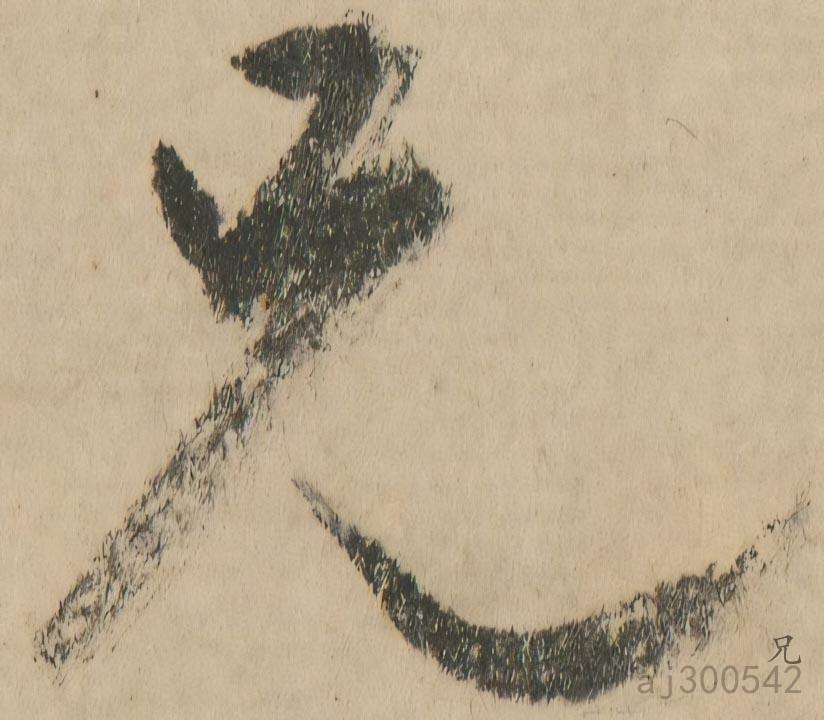 兄
兄
aj300542